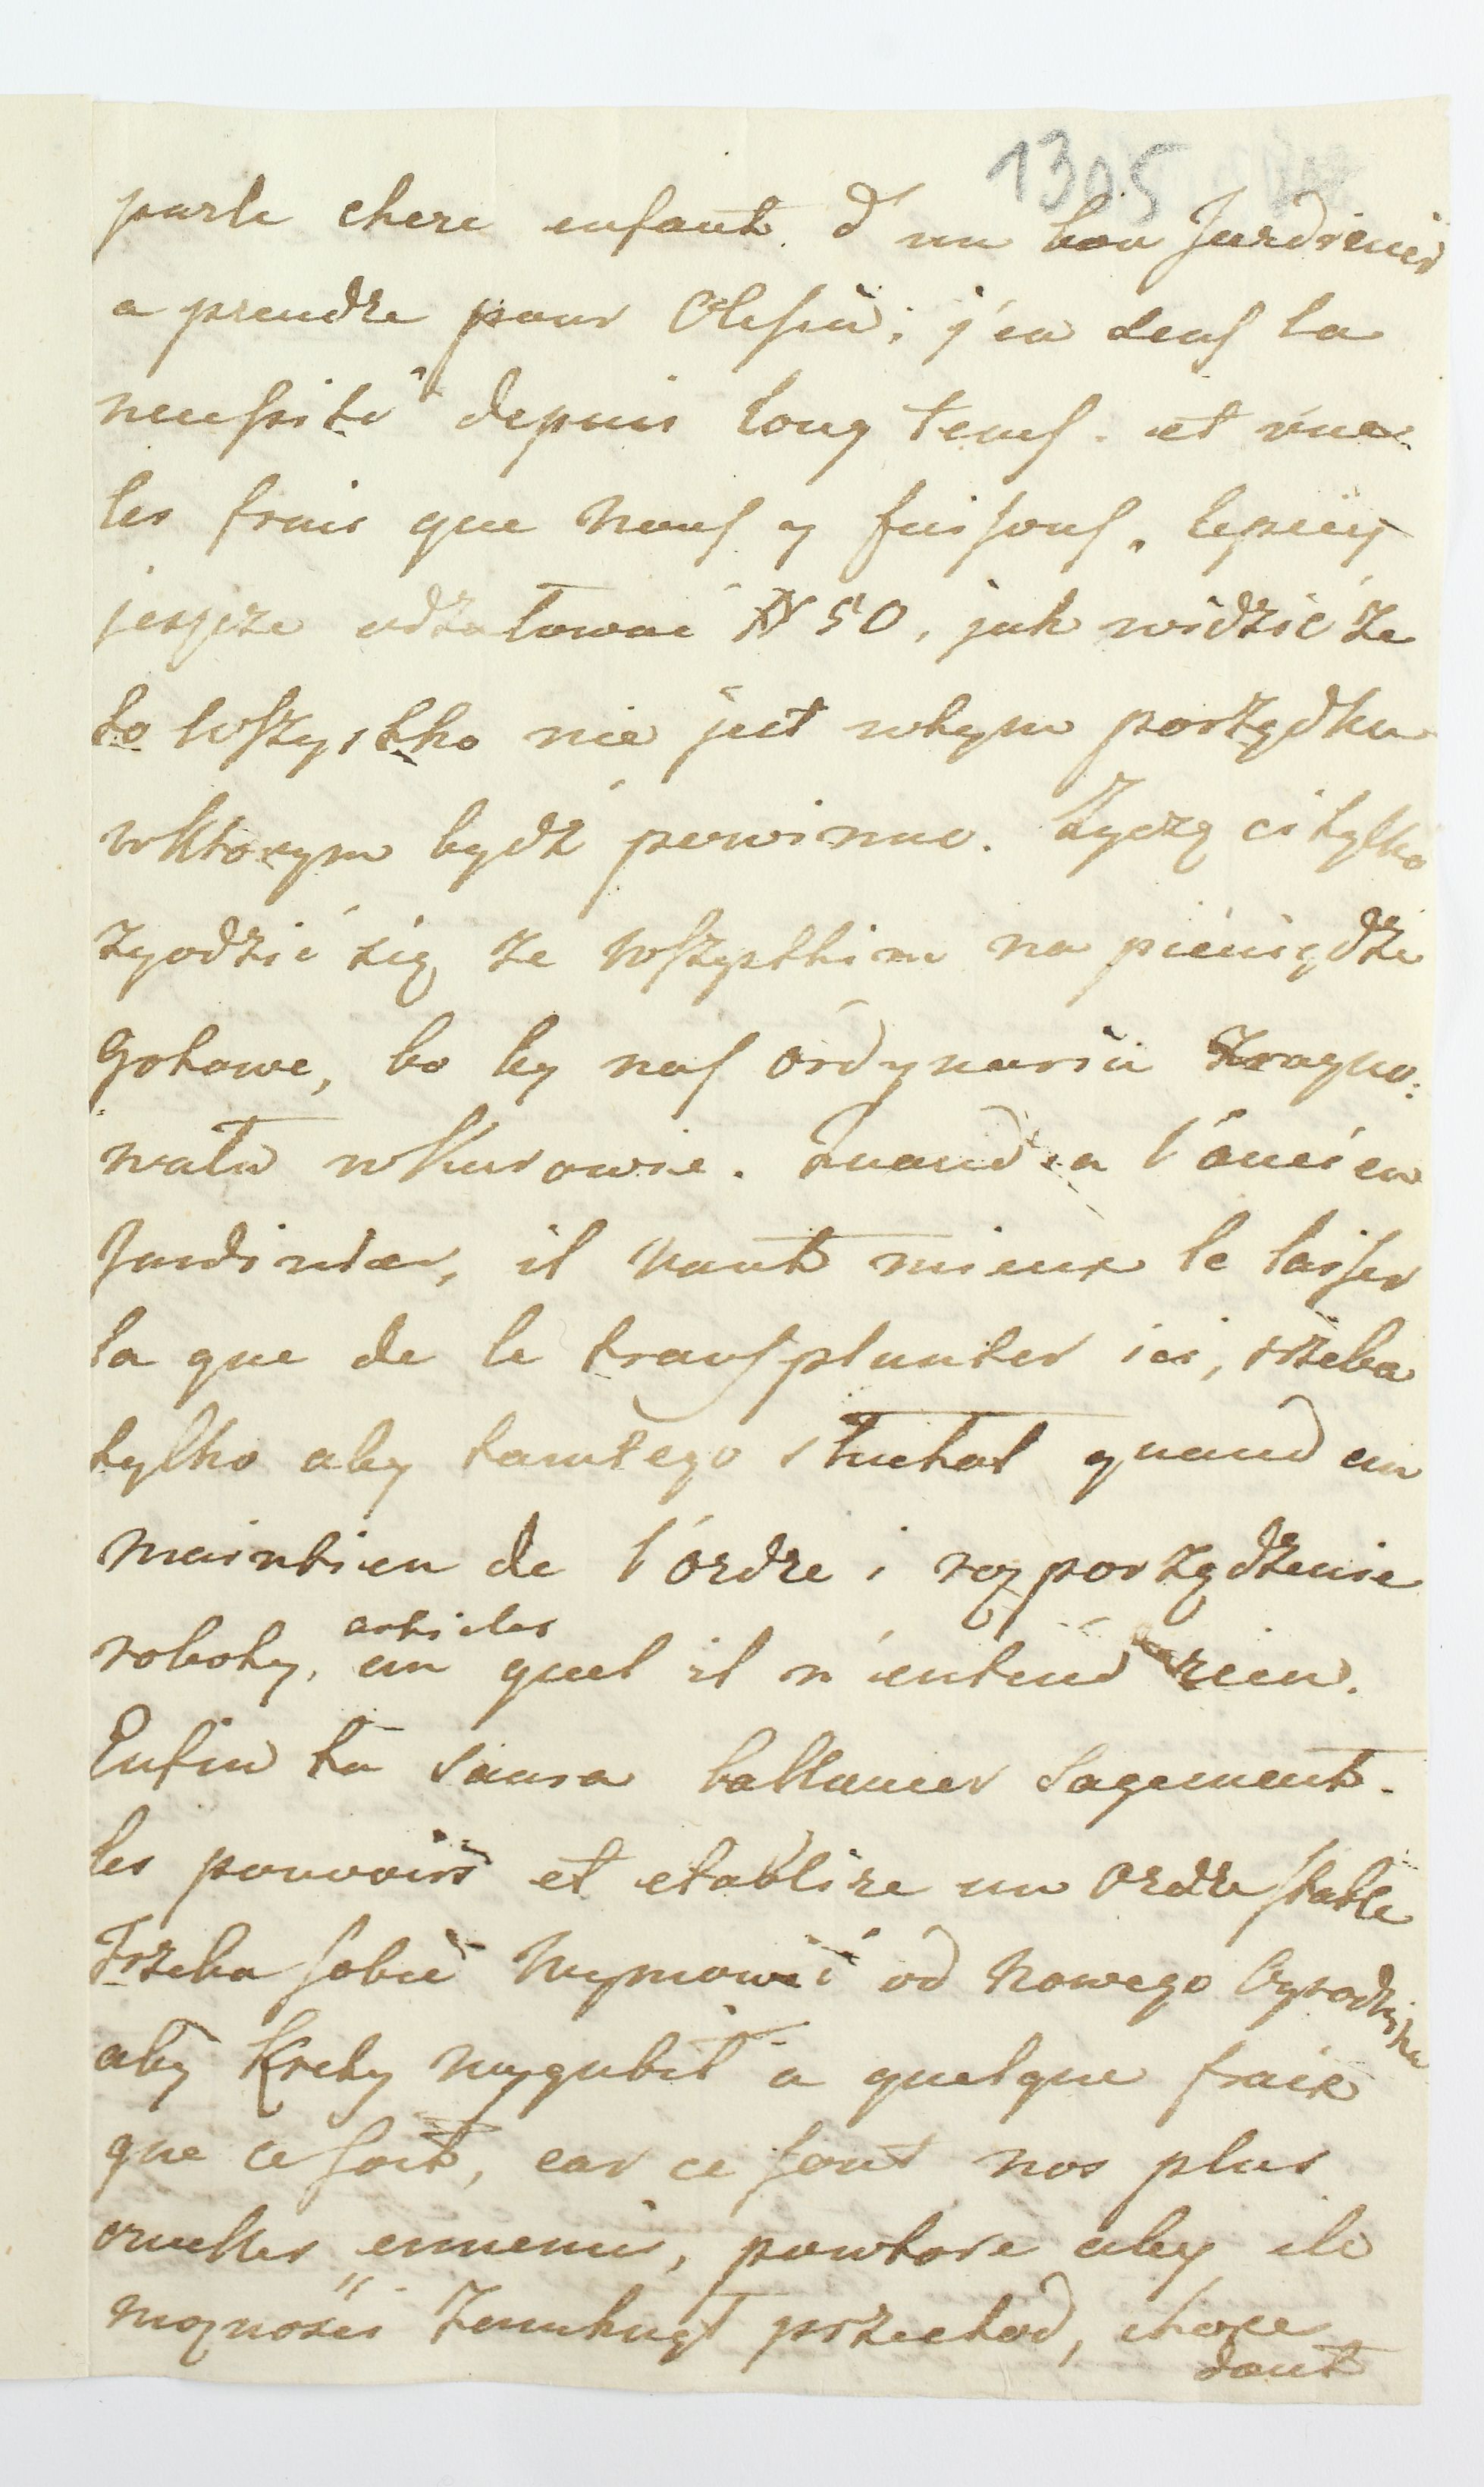 1305
parle chere enfant. d'un bon Jardinier
a prendre pour Olesin; j'en sens la
necessité depuis long tems. et vue
les frais que nous y faisons, lepiéy
jeszcze udżałować # 50, jak widzić że
to wszystko nie jest wtym porządku
wktorym bydź powinno. Zyczę ci tylko
zgodzić się ze wszystkim na pieniądze
Gotowe, bo by nas órdynaria zragno:
wała wKurowie. Quand a l'ancien
Jardinier, il vaut mieux le laisser
la que de le transplanter ici, trzeba
tylko aby tamtego słuchał quand au
maintien de l'ordre i rozporządzenie
roboty, au quel articles il n'entend rien.
Enfin tu saura ballancer sagement.
les pouvoirs et etablire un ordre stable
Trzeba sobie wymowić od nowego Ogrodnika
aby Krety wygubił a quelque frais
que ce soit, car ce sont nos plus
cruelles ennemis, powtore aby ile
moznosci zamknął przechod, chose
dont